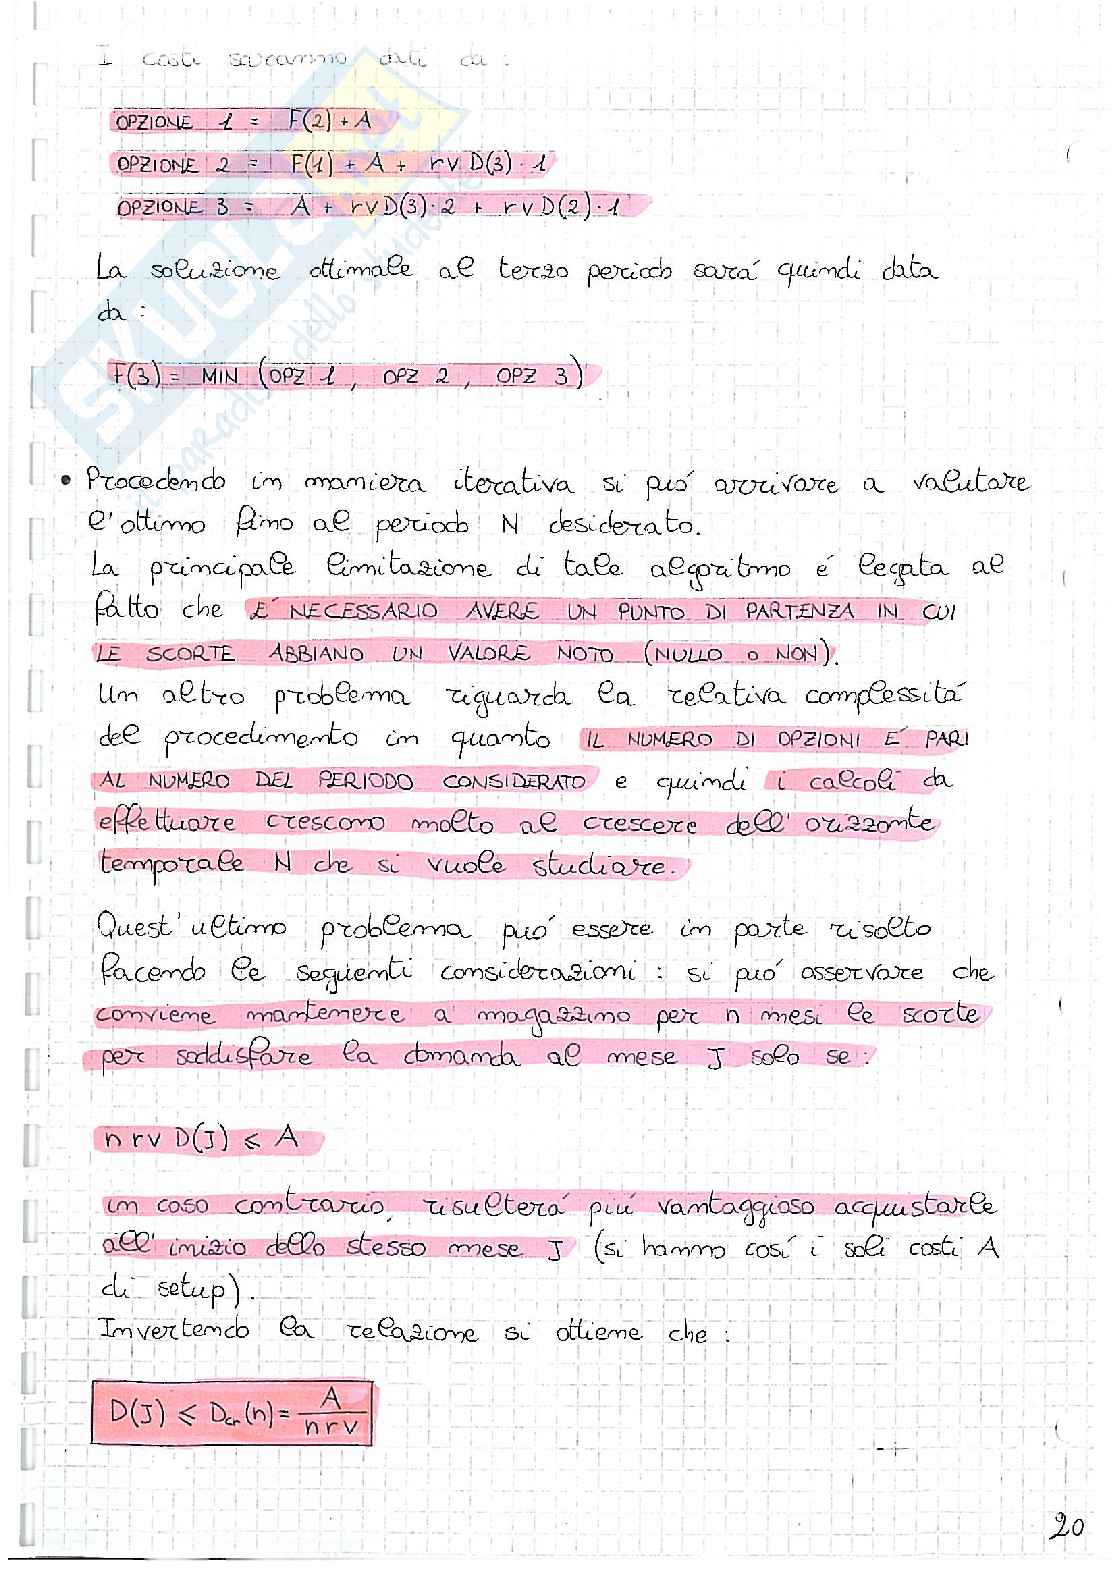 I costi saranno dati da :
OPZIONE 1 = F(2) + A
OPZIONE 2 = F(1) + A + rv D(3) · 1
OPZIONE 3 = A + rvD(3)·2 + rvD(2)·1
La soluzione ottimale al terzo periodo sará quindi data
da :
F(3) = MIN (OPZ 1 , OPZ 2 , OPZ 3)
• Procedendo in maniera iterativa si puó arrivare a valutare
l'ottimo fino al periodo N desiderato.
La principale limitazione di tale algoritmo é legata al
fatto che É NECESSARIO AVERE UN PUNTO DI PARTENZA IN CUI
LE SCORTE ABBIANO UN VALORE NOTO (NULLO O NON).
Un altro problema riguarda la relativa complessitá
del procedimento in quanto IL NUMERO DI OPZIONI É PARI
AL NUMERO DEL PERIODO CONSIDERATO e quindi i calcoli da
effettuare crescono molto al crescere dell'orizzonte
temporale N che si vuole studiare.
Quest'ultimo problema puó essere in parte risolto
facendo le seguenti considerazioni : si puó osservare che
conviene mantenere a magazzino per n mesi le scorte
per soddisfare la domanda al mese J solo se :
n rv D(J) ⩽ A
in caso contrario, risulterá piú vantaggioso acquistarle
all'inizio dello stesso mese J (si hanno cosí i soli costi A
di setup).
Invertendo la relazione si ottiene che :
D(J) ⩽ Dcr(n) = A / n r v
20
SKUOLA.net